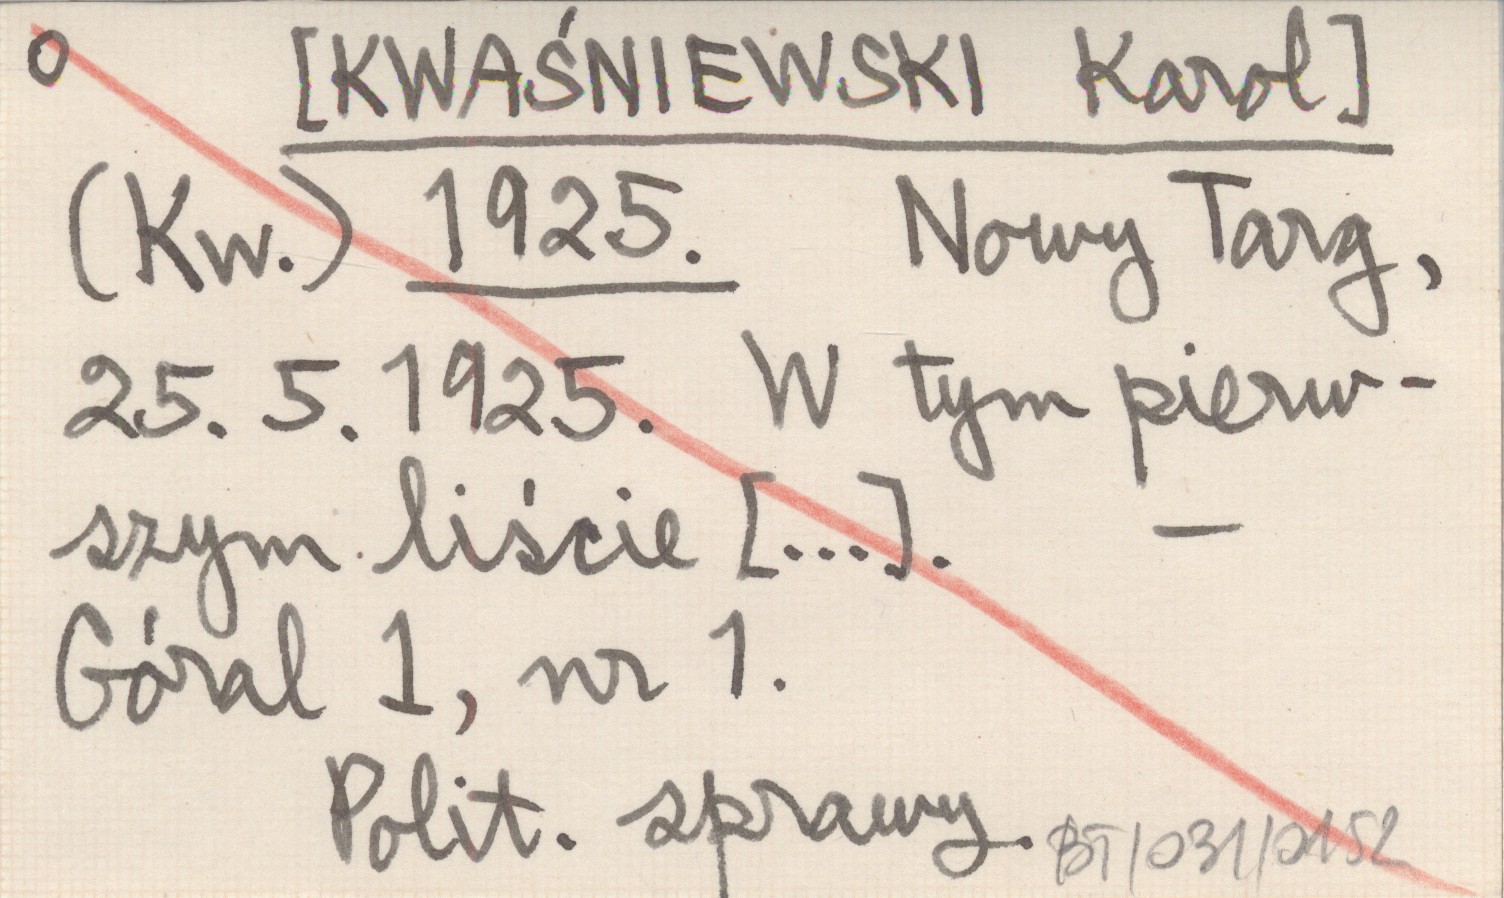 o [KWAŚNIEWSKI Karol]
(Kw.) 1925. Nowy Targ,
25. 5. 1925. W tym pierw-
szym liście [...]. —
Góral 1, nr 1.
Polit. sprawy.
BT/031/0152